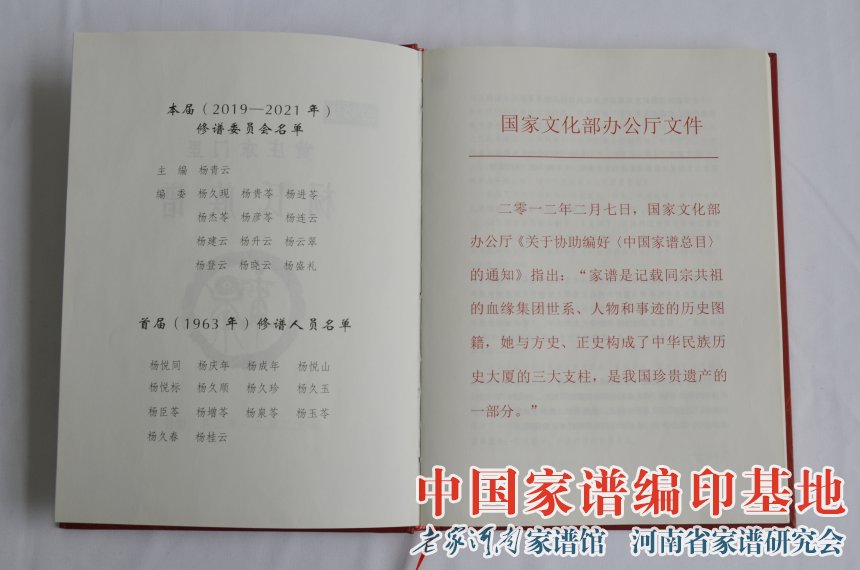 本届（2019—2021 年）
修谱委员会名单
主 编 杨青云
编 委 杨久现 杨贵苓 杨进苓
杨杰苓 杨彦苓 杨连云
杨建云 杨升云 杨云翠
杨登云 杨晓云 杨盛礼
首届（1963 年）修谱人员名单
杨悦同 杨庆年 杨成年 杨悦山
杨悦标 杨久顺 杨久珍 杨久玉
杨臣苓 杨增苓 杨泉苓 杨玉苓
杨久春 杨桂云
国家文化部办公厅文件
二零一二年二月七日，国家文化部
办公厅《关于协助编好〈中国家谱总目〉
的通知》指出：“家谱是记载同宗共祖
的血缘集团世系、人物和事迹的历史图
籍，她与方史、正史构成了中华民族历
史大厦的三大支柱，是我国珍贵遗产的
一部分。”
中国家谱编印基地
老家河南家谱馆 河南省家谱研究会